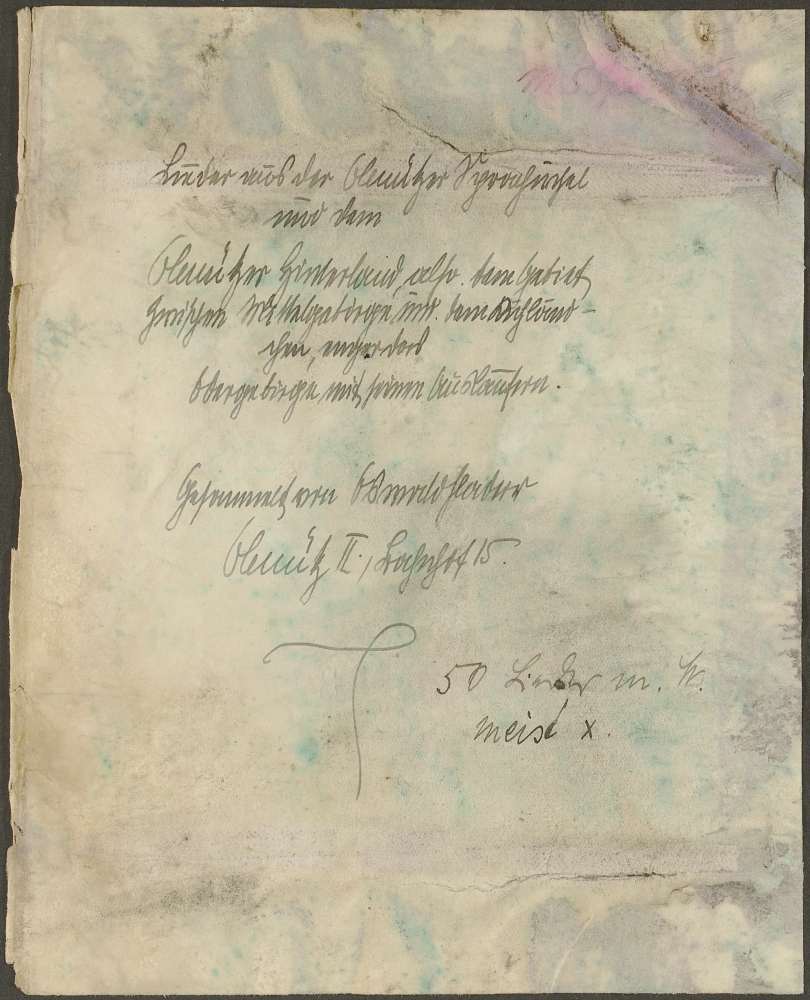 Lieder aus der Olmützer Sprachinsel
und dem
Olmützer Hinterland, also dem Gebiet
zwischen Mittelgebirge und dem Kuhländ-
chen, enger das
Odergebirge mit seinen Ausläufern.
Gesammelt von Oswald
Olmütz II., Bahnhof 15.
50 Lieder m. W.
meist x.